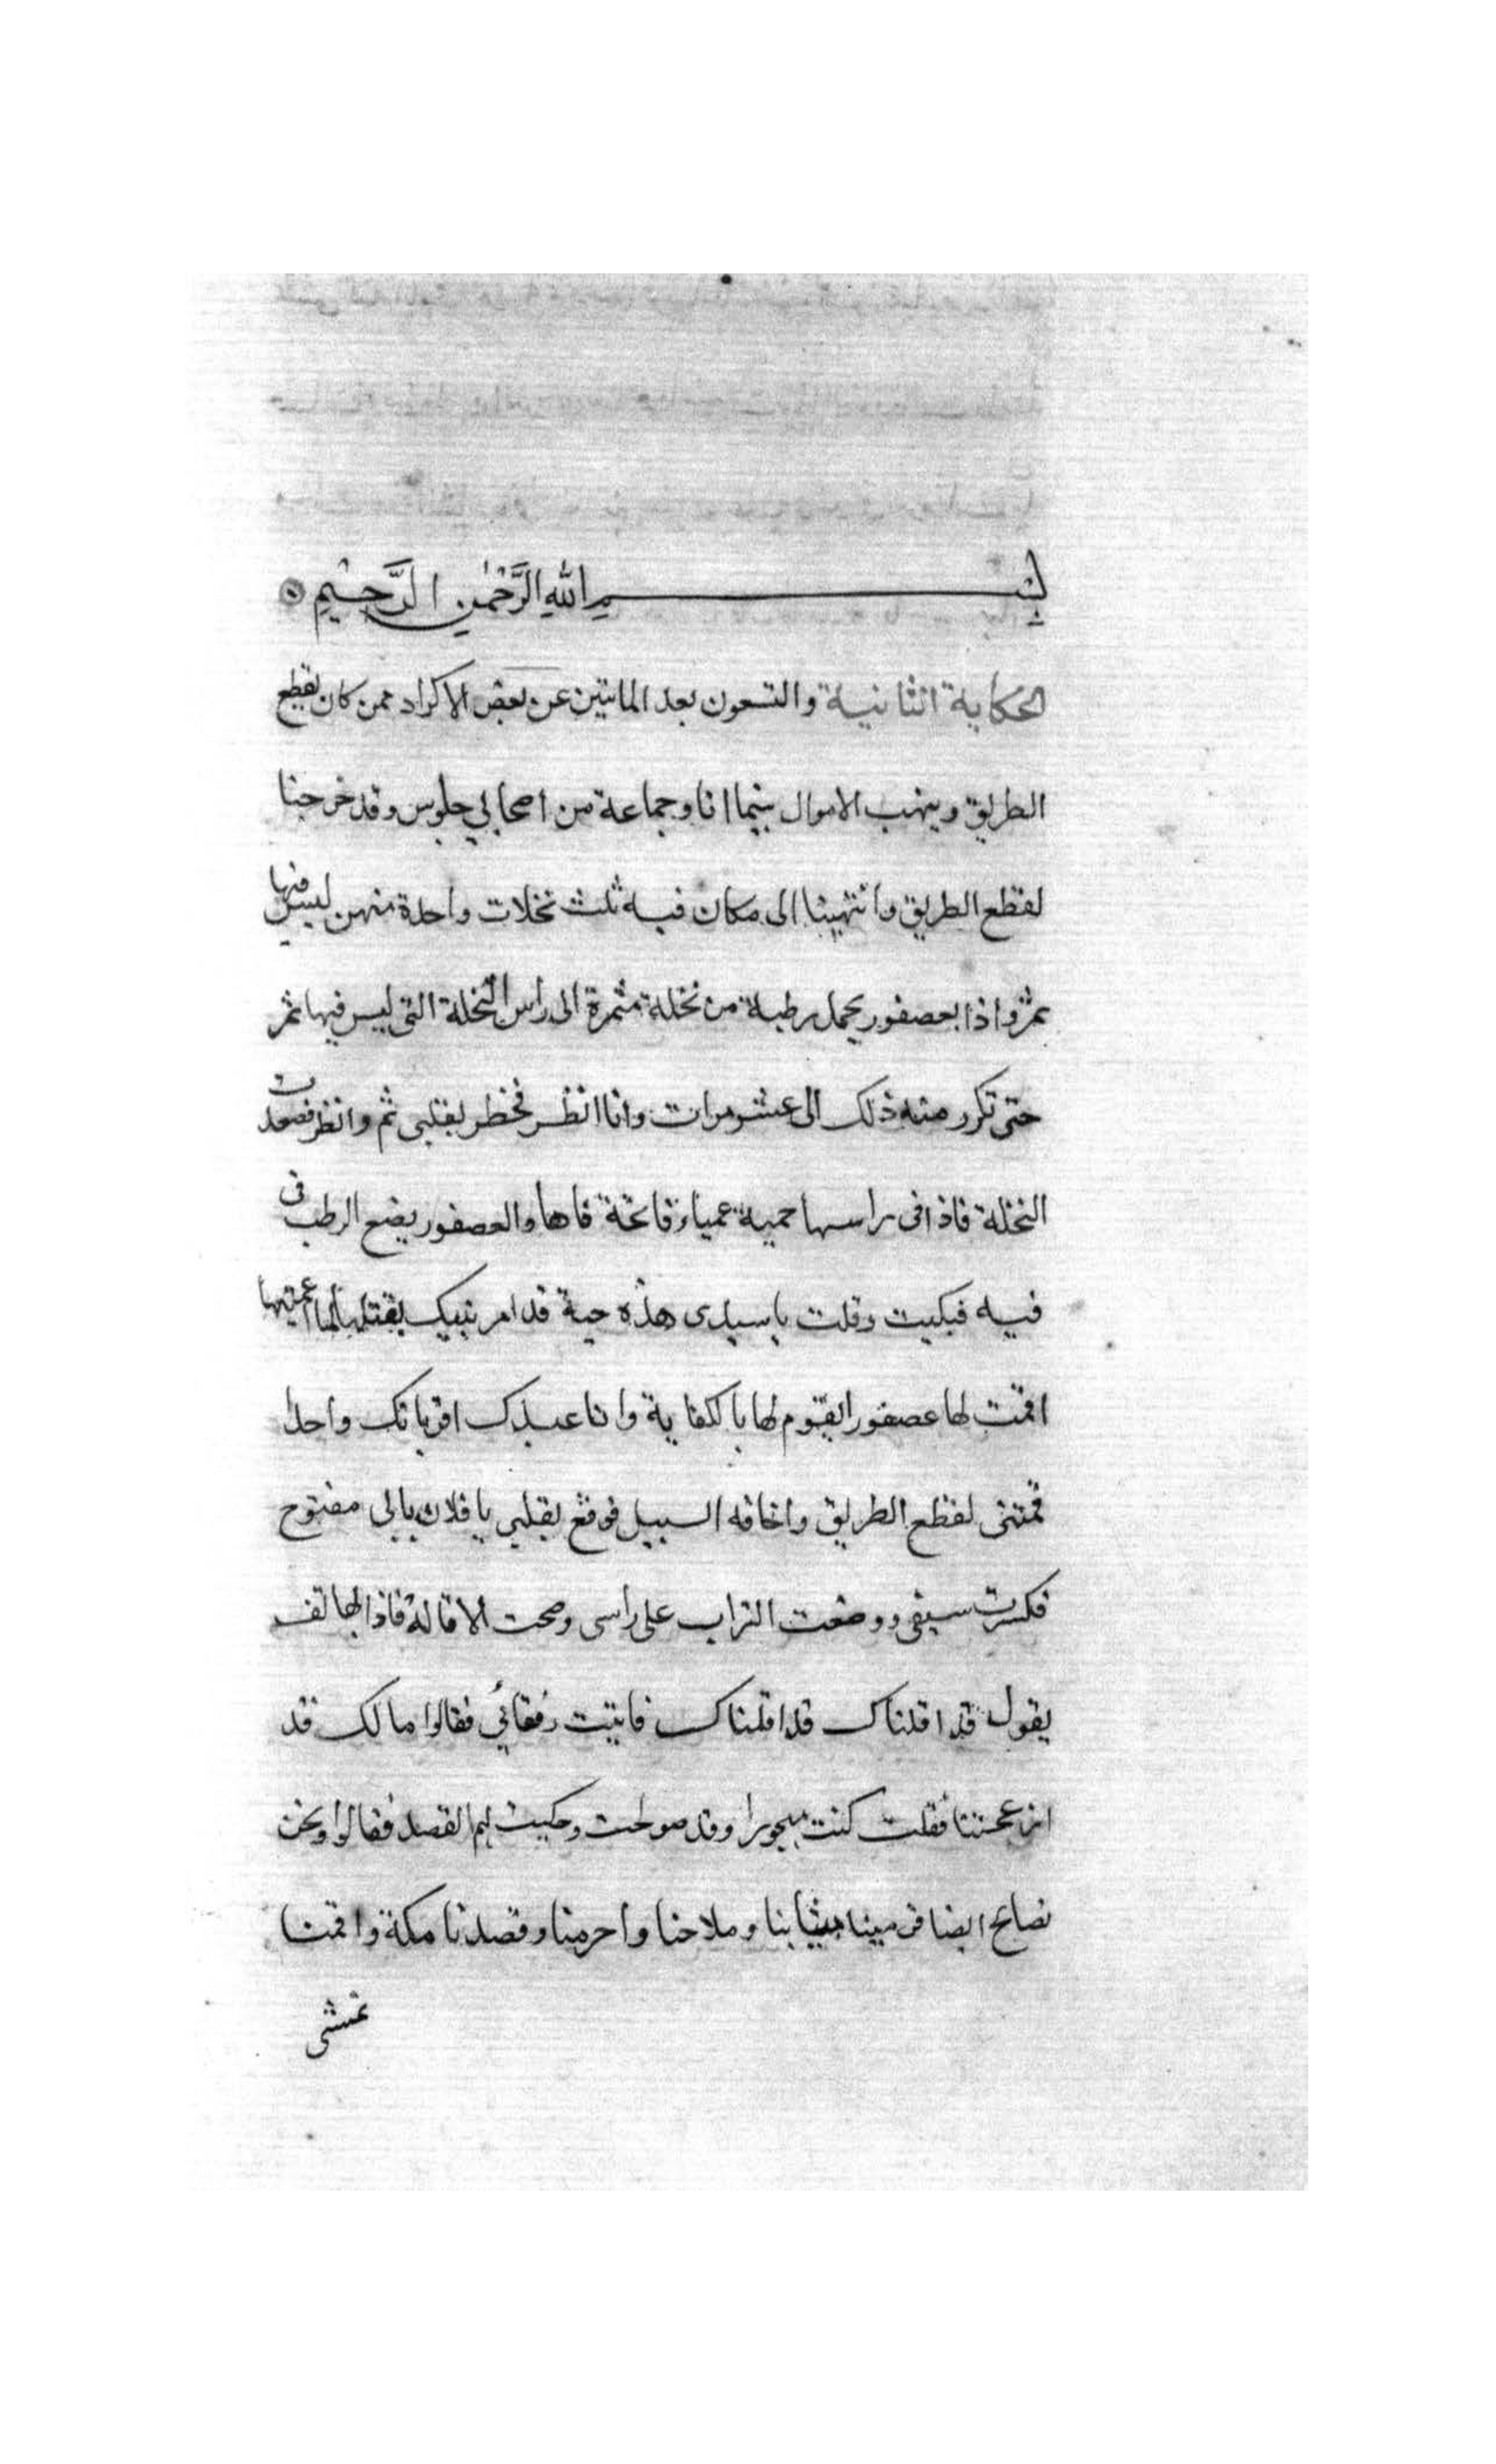 بِسْمِ اللهِ الرَّحْمٰنِ الرَّحِيْمِ
الحكاية الثانية والتسعون بعد المايتين عن بعض الاكراد ممن كان يقطع
الطريق وينهب الاموال بينما انا وجماعة من اصحابي جلوس وقد خرجنا
لقطع الطريق وانتهينا الى مكان فيه ثلث نخلات واحدة منهن ليس فيها
ثمر واذا بعصفور يحمل رطبة من نخلة مثمرة الى رأس النخلة التى ليس فيها ثمر
حتى تكرر منه ذلك الى عشر مرات وانا انظر فخطر بقلبى ثم وانظر فصعدت
النخلة فاذا فى راسها حية عمياء فاتحة فاها والعصفور يضع الرطب فى
فيه فبكيت وقلت يا سيدى هذه حية قد امر نبيك بقتلها لما اعميتها
اقمت لها عصفورا يقوم لها بالكفاية وانا عبدك اقر بانك واحد
قمتنى لقطع الطريق واخافه السبيل فوقع بقلبى يا فلان بابى مفتوح
فكسرت سيفى ووضعت التراب على راسى وصحت الاقالة فاذا بهاتف
يقول قد اقلناك قد اقلناك فاتيت رفقائي فقالوا ما لك قد
ازعجتنا فقلت كنت مهجورا وقد صولحت وحكيت لهم القصد فقالوا ونحن
نصالح ايضا ثيابنا وسلاحنا واحرمنا وقصدنا مكة واقمنا
نمشى